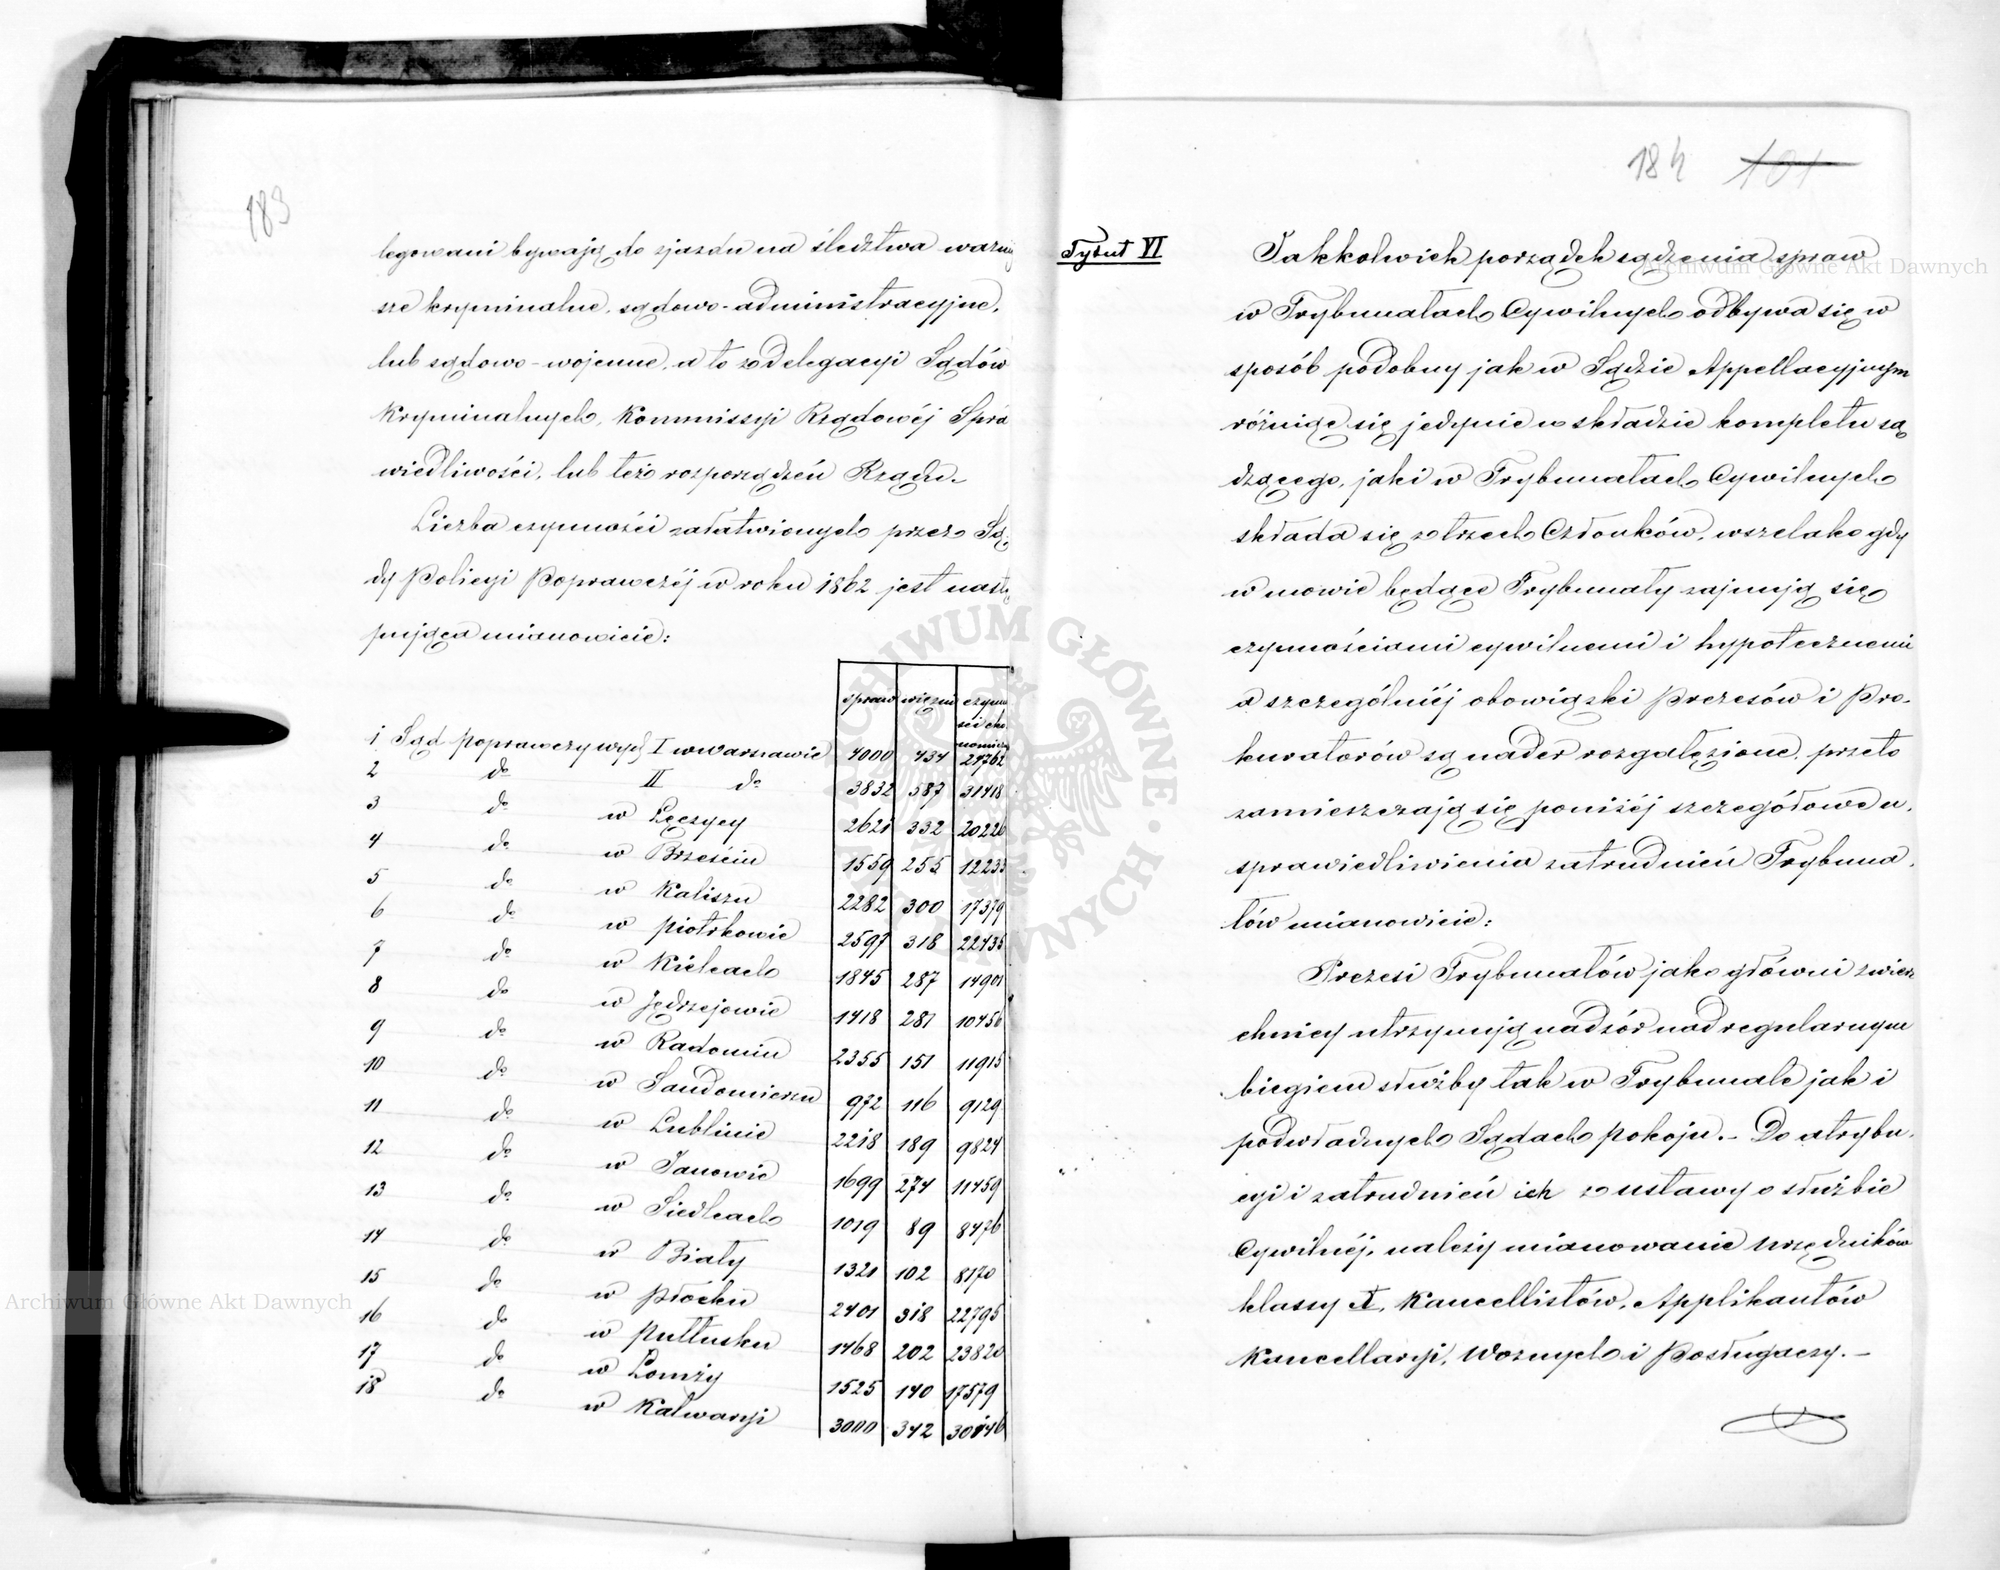 183
legowani bywają do zjazdu na śledztwa ważniej
sze kryminalne, sądowo-administracyjne,
lub sądowo-wojenne, a to z delegacyi Sądów
Kryminalnych, Kommissyi Rządowéj Spra
wiedliwości, lub też rozporządzeń Rządu.
Liczba czynności załatwionych przez Są
dy Policyi Poprawczéj w roku 1862 jest nastę
pująca mianowicie:
spraw więzni czynno
ści eko
nomiczn
1 Sąd poprawczy wydz I w Warszawie 4000 434 24762
2 do II do 3832 587 31418
3 do w Łęczycy 2621 332 20226
4 do w Brześciu 1559 255 12235
5 do w Kaliszu 2282 300 17379
6 do w Piotrkowie 2597 318 22435
7 do w Kielcach 1845 287 14901
8 do w Jędrzejowie 1418 281 10456
9 do w Radomiu 2355 151 11915
10 do w Sandomierzu 972 116 9129
11 do w Lublinie 2218 189 9824
12 do w Janowie 1699 274 11459
13 do w Siedlcach 1019 89 8476
14 do w Biały 1321 102 8170
15 do w Płocku 2401 318 22795
16 do w Pułtusku 1468 202 23820
17 do w Łomży 1525 140 17579
18 do w Kalwaryi 3000 342
184 101
Tytuł VI
Jakkolwiek porządek sądzenia spraw
w Trybunałach Cywilnych odbywa się w
sposób podobny jak w Sądzie Appellacyjnym
różniąc się jedynie w składzie kompletu są
dzącego, jaki w Trybunałach Cywilnych
składa się z trzech Członków, wszelako gdy
w mowie będące Trybunały zajmują się
czynnościami cywilnemi i hypotecznemi
a szczególniéj obowiązki Prezesów i Pro-
kuratorów są nader rozgałęzione, przeto
zamieszczają się poniżéj szczegółowe u.
sprawiedliwienia zatrudnień Trybuna.
łów mianowicie:
Prezesi Trybunałów jako główni zwierz
chnicy utrzymują nadzór nad regularnym
biegiem służby tak w Trybunale jak i
podwładnych Sądach pokoju. - Do atrybu.
cyi i zatrudnień ich z ustawy o służbie
Cywilnéj, należy mianowanie Urzędników
klassy X, Kancellistów, Applikantów
Kancellaryi, Woznych i Posługaczy. -
Archiwum Główne Akt Dawnych
Archiwum Główne Akt Dawnych
ARCHIWUM GŁÓWNE AKT DAWNYCH